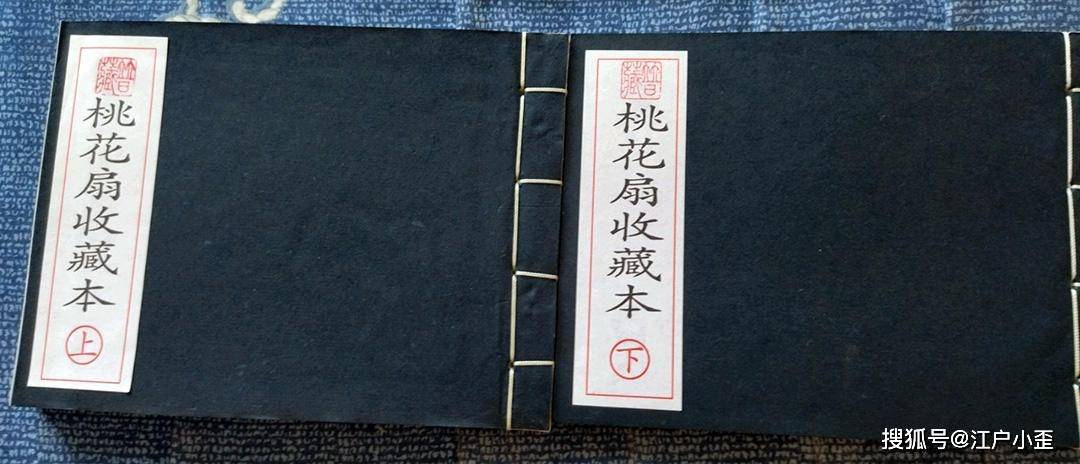 桃花扇收藏本
上
桃花扇收藏本
下
搜狐号@江户小歪